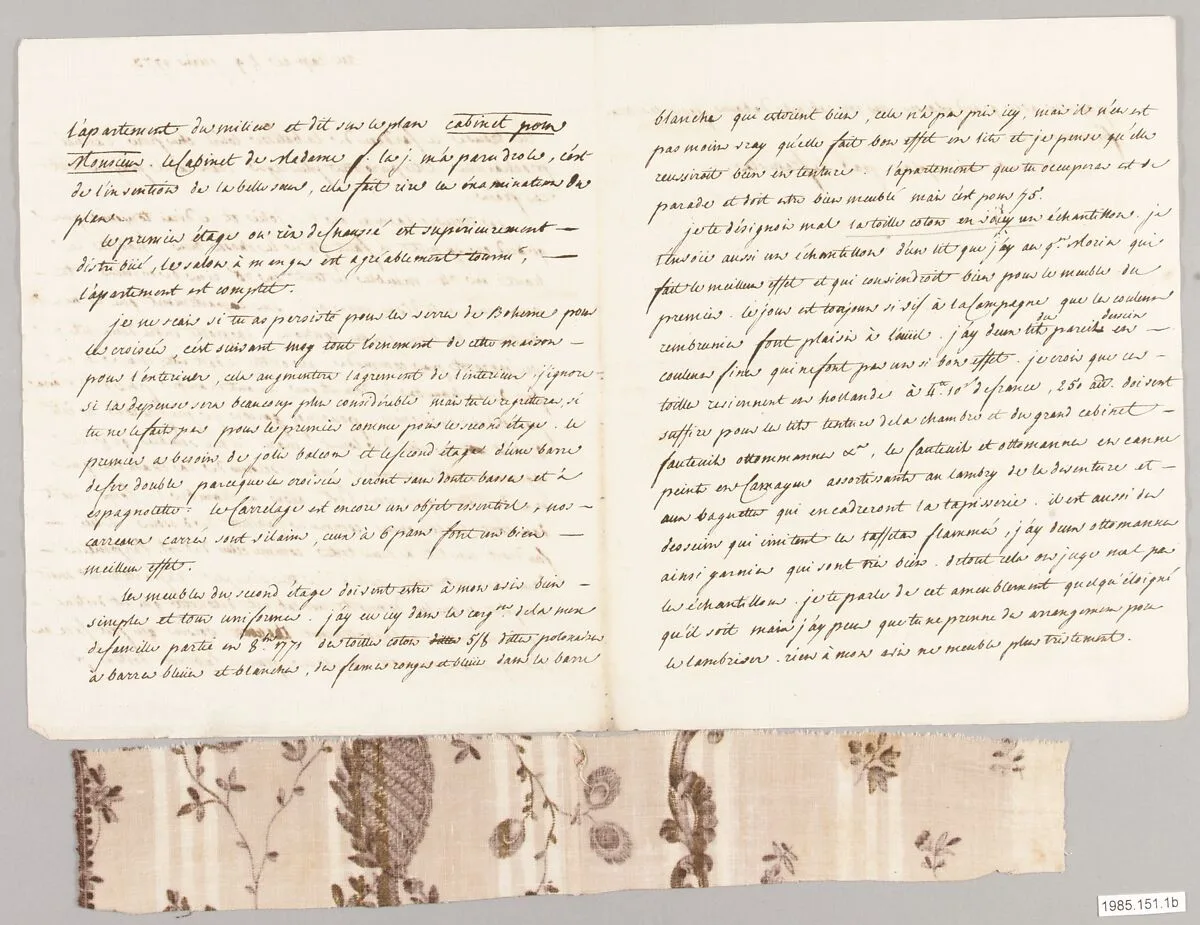 l'apartement du milieu et dit sur le plan cabinet pour
Monsieur. le Cabinet de Madame f. la j. m'a paru drole, c'est
de l'invention de la belle sœur, cela fait rire en éxamination du
plan.
le premier étage ou réz de chaussé est supérieurement —
distribüé, le salon à manger est agréablement tourné, —
l'apartement est complet.
je ne scais si tu as persisté pour les verres de Boheme pour
les croisées, c'est suivant moy tout l'ornement de cette maison —
pour l'exterieur, cela augmentera l'agrement de l'interieur. j'ignore
si la depense sera beaucoup plus considérable mais tu le regretteras, si
tu ne le fait pas pour le premier comme pour le second étage. le
premier a besoin de jolis balcons et le second étage d'une barre
de fer double parceque les croisées seront sans doute basses et à
espagnolette. le Carrelage est encore un objet essentiel, nos —
carreaux carrés sont vilains, ceux à 6 pans font un bien —
meilleur effet.
les meubles du second étage doivent estre à mon avis bien —
simples et tous uniformes. j'ay eu icy dans la carg.on de la
de famille partie en 8.bre 1771 des toilles coton 5/8 dittes polonaises
à barres bleües et blanches, des flames rouges et bleües dans la barre
1985.151.1b
blanche qui estoient bien, cela n'a pas pris icy, mais il n'en est
pas moins vray qu'elle fait bon effet en lits et je pense qu'elle
reussiroit bien en tenture. l'apartement que tu occuperas est de
parade et doit estre bien meublé mais c'est pour 75.
je te désignois mal la toille coton en voicy un échantillon. je
t'envoie aussi un échantillon d'un lit que j'ay au q.er Morin qui
fait le meilleur effet et qui conviendroit bien pour le meuble du
premier. le jour est toujours si vif à la Campagne que les couleurs
rembrunies font plaisir à l'œuil. j'ay deux lits du pareil dessein en —
couleurs fines qui ne font pas un si bon effet. je crois que ces —
toilles reviennent en hollande à 4.tt 10.s de france, 250 doivent
suffire pour les lits tenture de la chambre et du grand cabinet —
fauteuils ottommannes &.a, les fauteuils et ottomannes en canne
peints en Camayeu assortissants au lambry de la devanture et —
aux baguettes qui encadreront la tapisserie. il est aussi des
desseins qui imitent les taffetas flammés, j'ay deux ottomannes
ainsi garnies qui sont tres bien. de tout cela on juge mal par
les échantillons. je te parle de cet ameublement quelqu'éloigné
qu'il soit mais j'ay peur que tu ne prenne des arrangemens pour
le lambrisser. rien à mon avis ne meuble plus tristement.